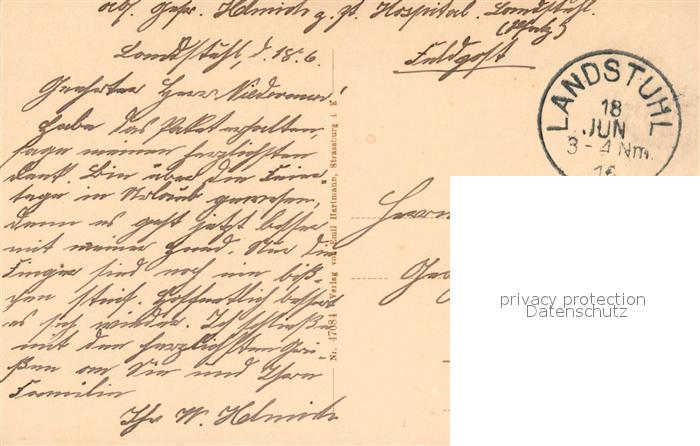 abs. Gefr. Helmich z. Zt. Hospital. Landstuhl.
(Pfalz)
Landstuhl, d. 18. 6.
Feldpost
Geehrter Herr Niedermei
habe das Paket erhalten,
sage meinen herzlichsten
Dank. Bin über die
tage in Urlaub gewesen,
denn es geht jetzt besser
mit meiner Hand. Nur die
Finger sind noch ein biß-
chen steif. Hoffentlich bessert
es sich wieder. Ich schließe
mit den herzlichsten Grü-
ßen an Sie und Ihre
Familie
Ihr W. Helmich
Nr. 47084 Verlag von Emil Hartmann, Strassburg i. E.
LANDSTUHL
18
JUN
3-4 Nm.
16
Herrn
privacy protection
Datenschutz